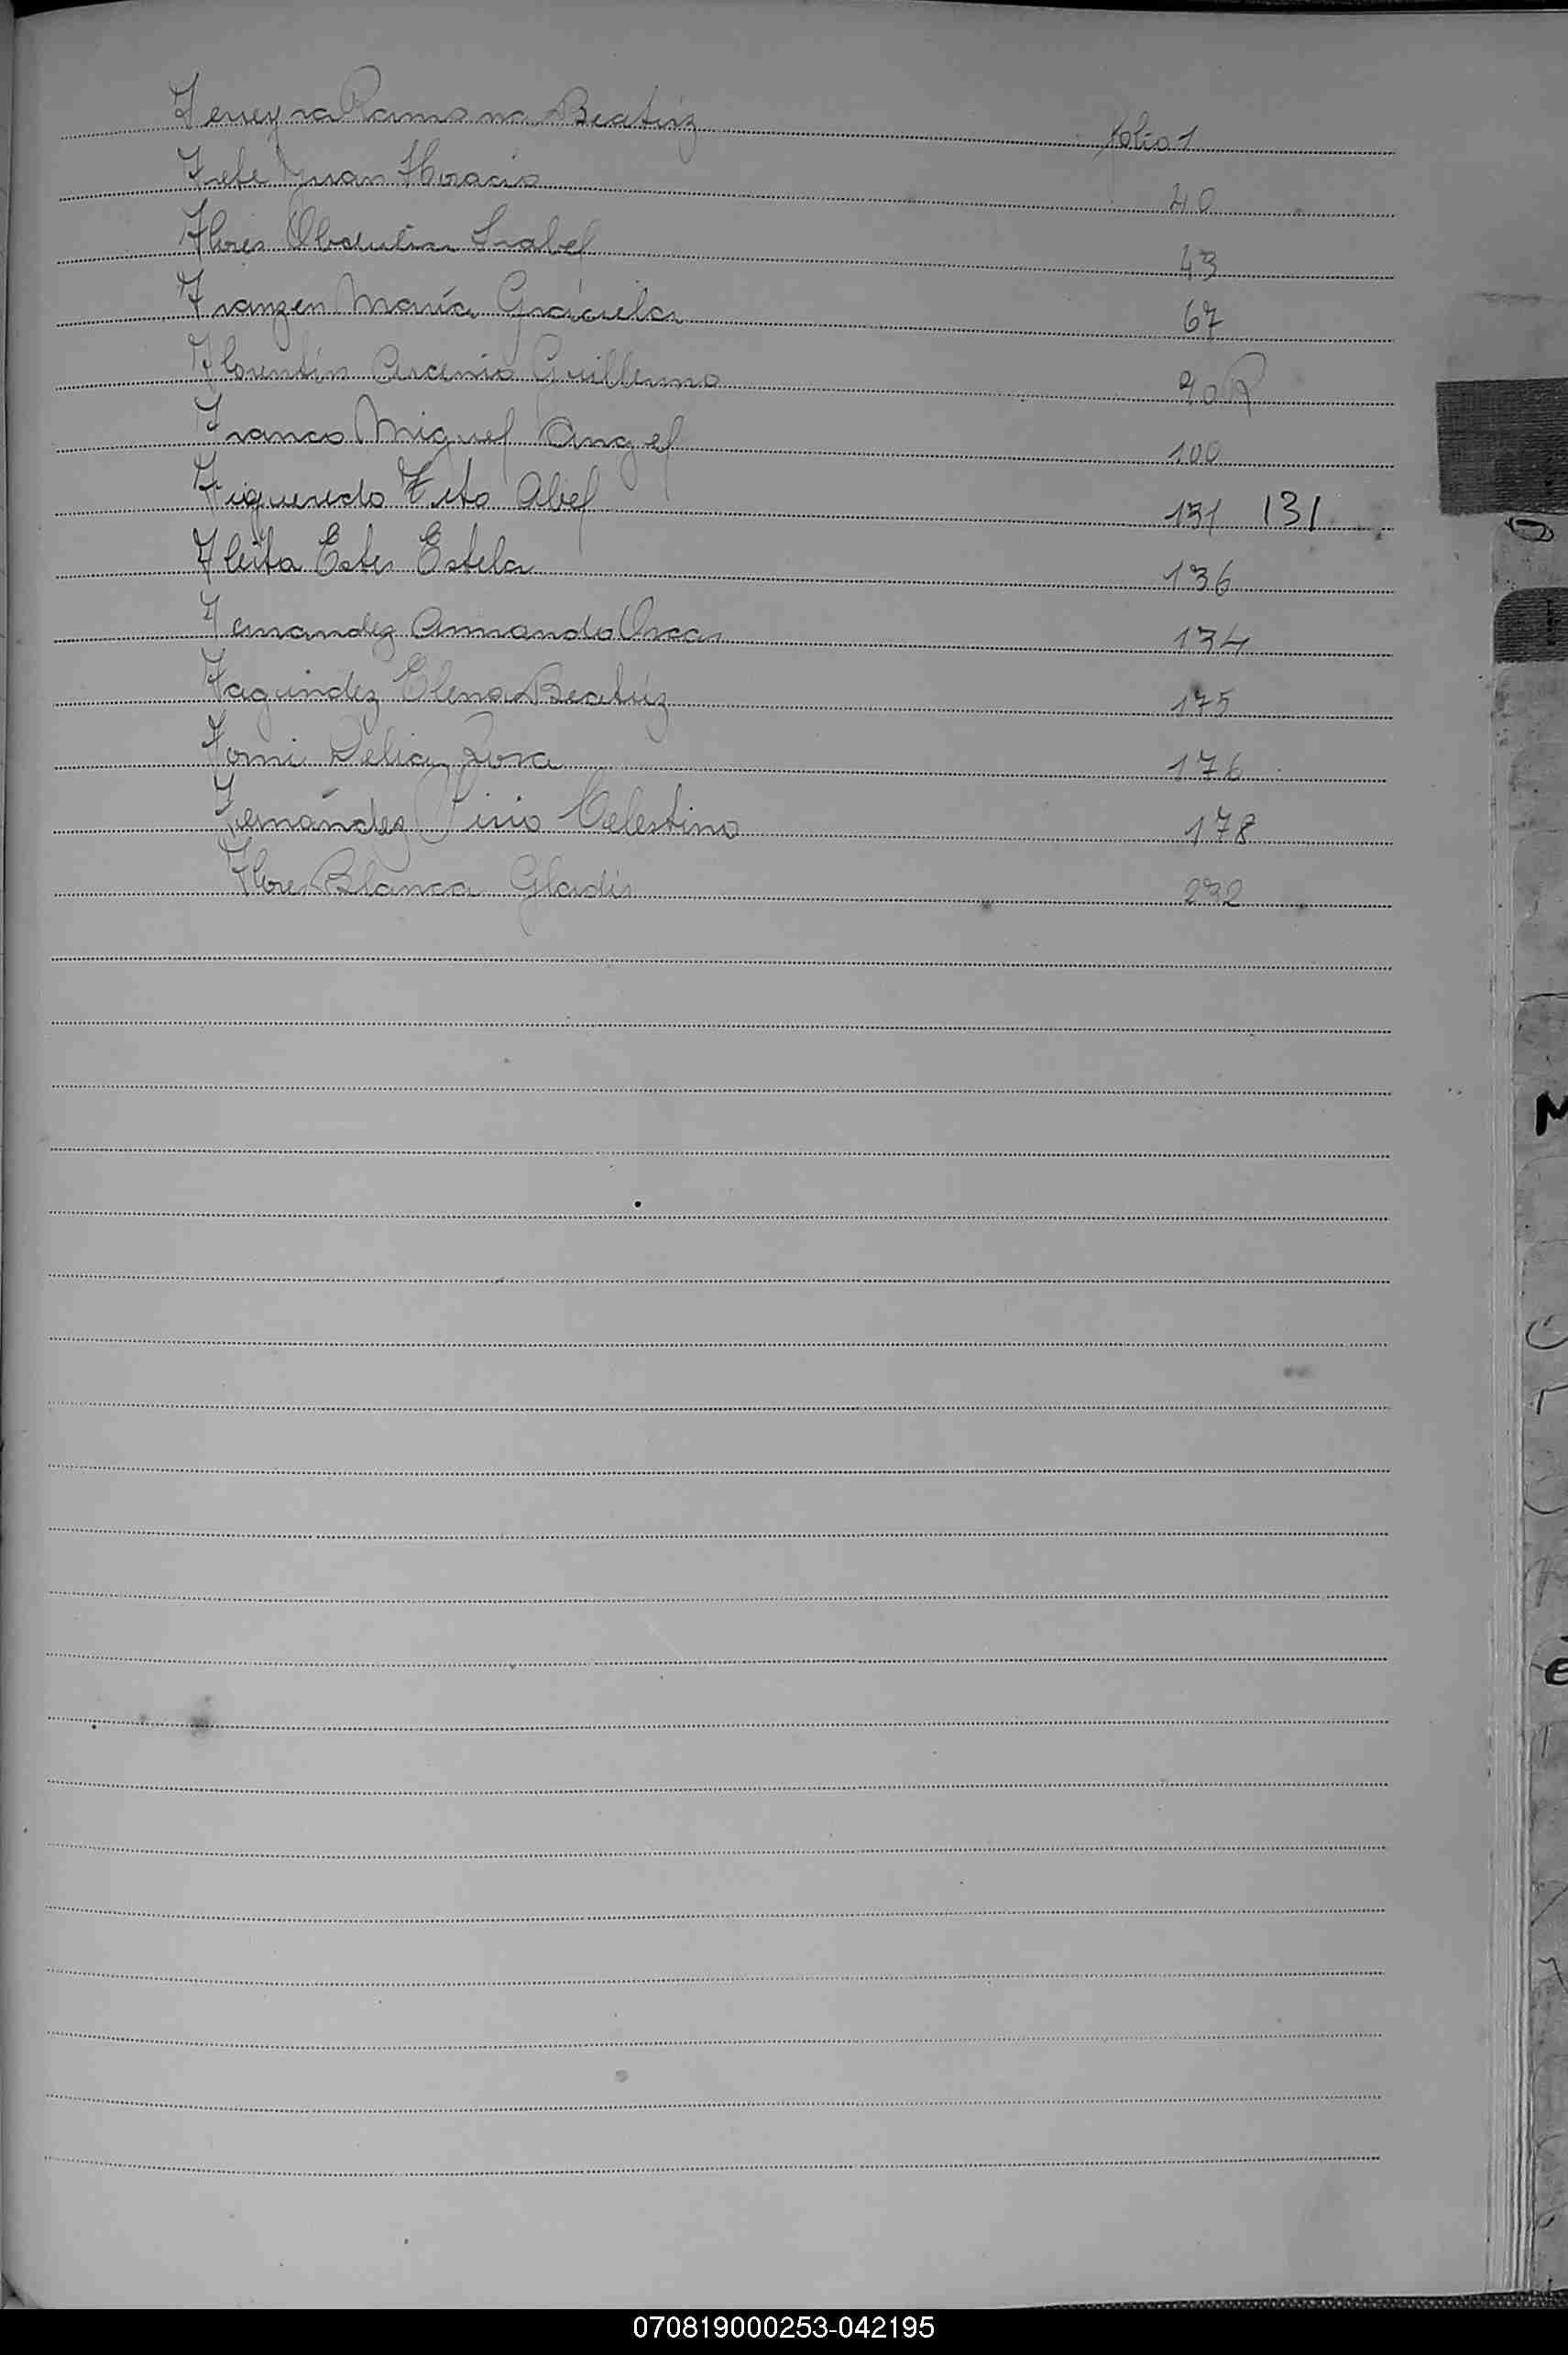 Ferreyra Ramona Beatriz folio 1
Juan Horacio 40
Flores Obdulia Isabel 43
Franzen María Graciela 67
Florentín Arcenio Guillermo 90 R
Franco Miguel Angel 100
Figueredo Tito Abel 131 131
Fleita Ester Estela 136
Fernandez Armando Oscar 134
Fagundez Elena Beatriz 175
Delia Rosa 176
Fernández Celestino 178
Flores Blanca Gladis 292
M
070819000253-042195